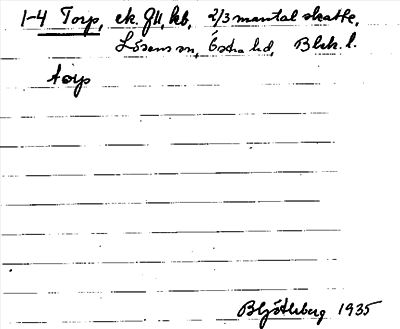 1-4 Torp, ek. GU, kb, 2/3 mantal skatte,
Lösens sn, Östra hd, Blek. l.
torp
B Götlberg 1935